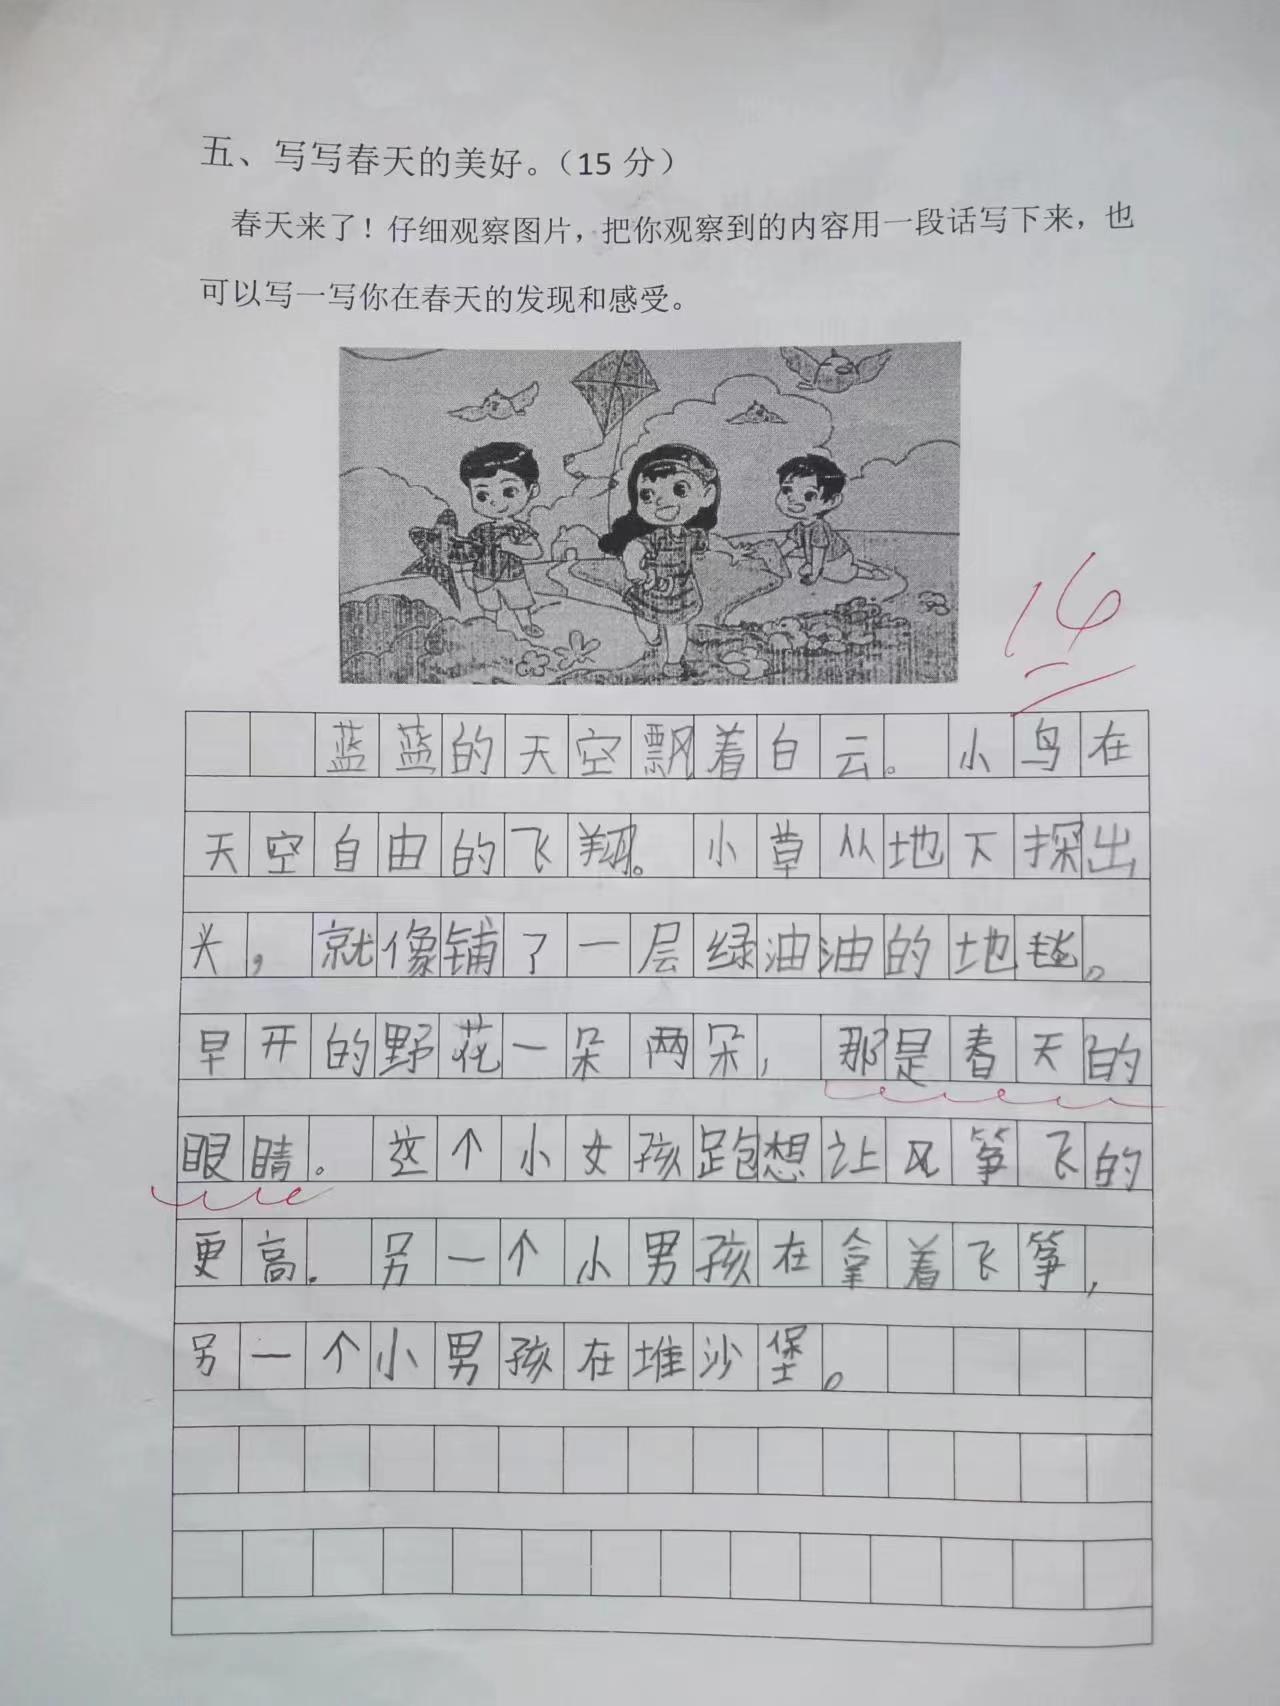 五、写写春天的美好。（15 分）
春天来了！仔细观察图片，把你观察到的内容用一段话写下来，也
可以写一写你在春天的发现和感受。
14
蓝蓝的天空飘着白云。小鸟在
天空自由的飞翔。小草从地下探出
头，就像铺了一层绿油油的地毯。
早开的野花一朵两朵，那是春天的
眼睛。这个小女孩跑想让风筝飞的
更高。另一个小男孩在拿着飞筝，
另一个小男孩在堆沙堡。